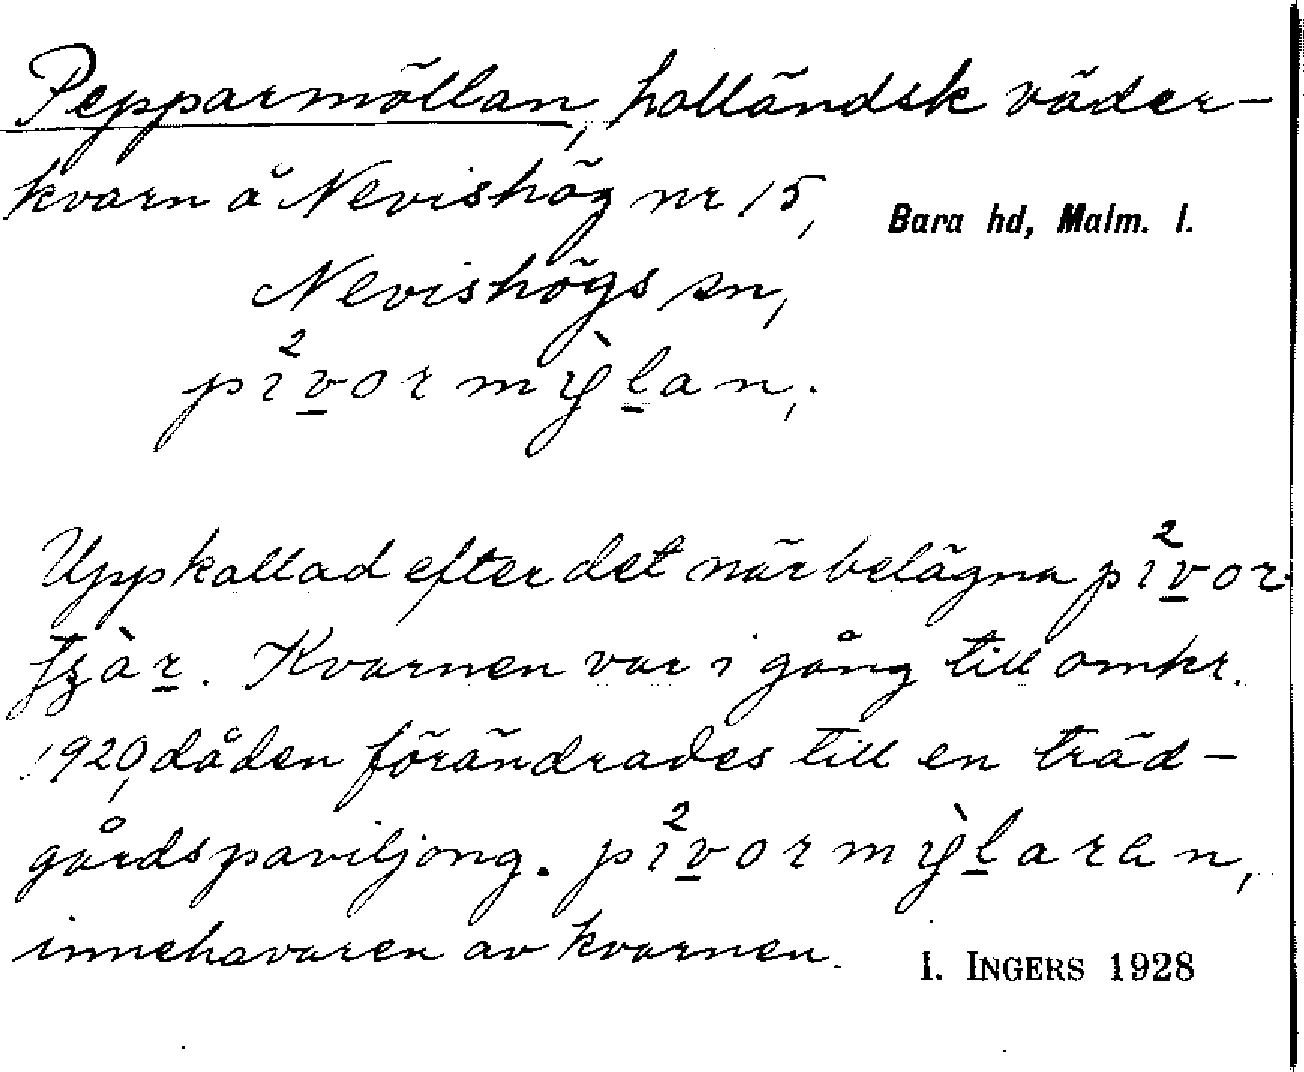 Pepparmöllan, holländsk väder-
kvarn å Nevishög nr 15,
Bara hd, Malm. l.
Nevishögs sn,
pi²v̲or mỳl̲an,.
Uppkallad efter det närbelägna pi²v̲or-
tʒàr̲. Kvarnen var i gång till omkr.
1920, då den förändrades till en träd-
gårdspaviljong. pi²v̲or mỳl̲aren,
innehavaren av kvarnen.
I. INGERS 1928